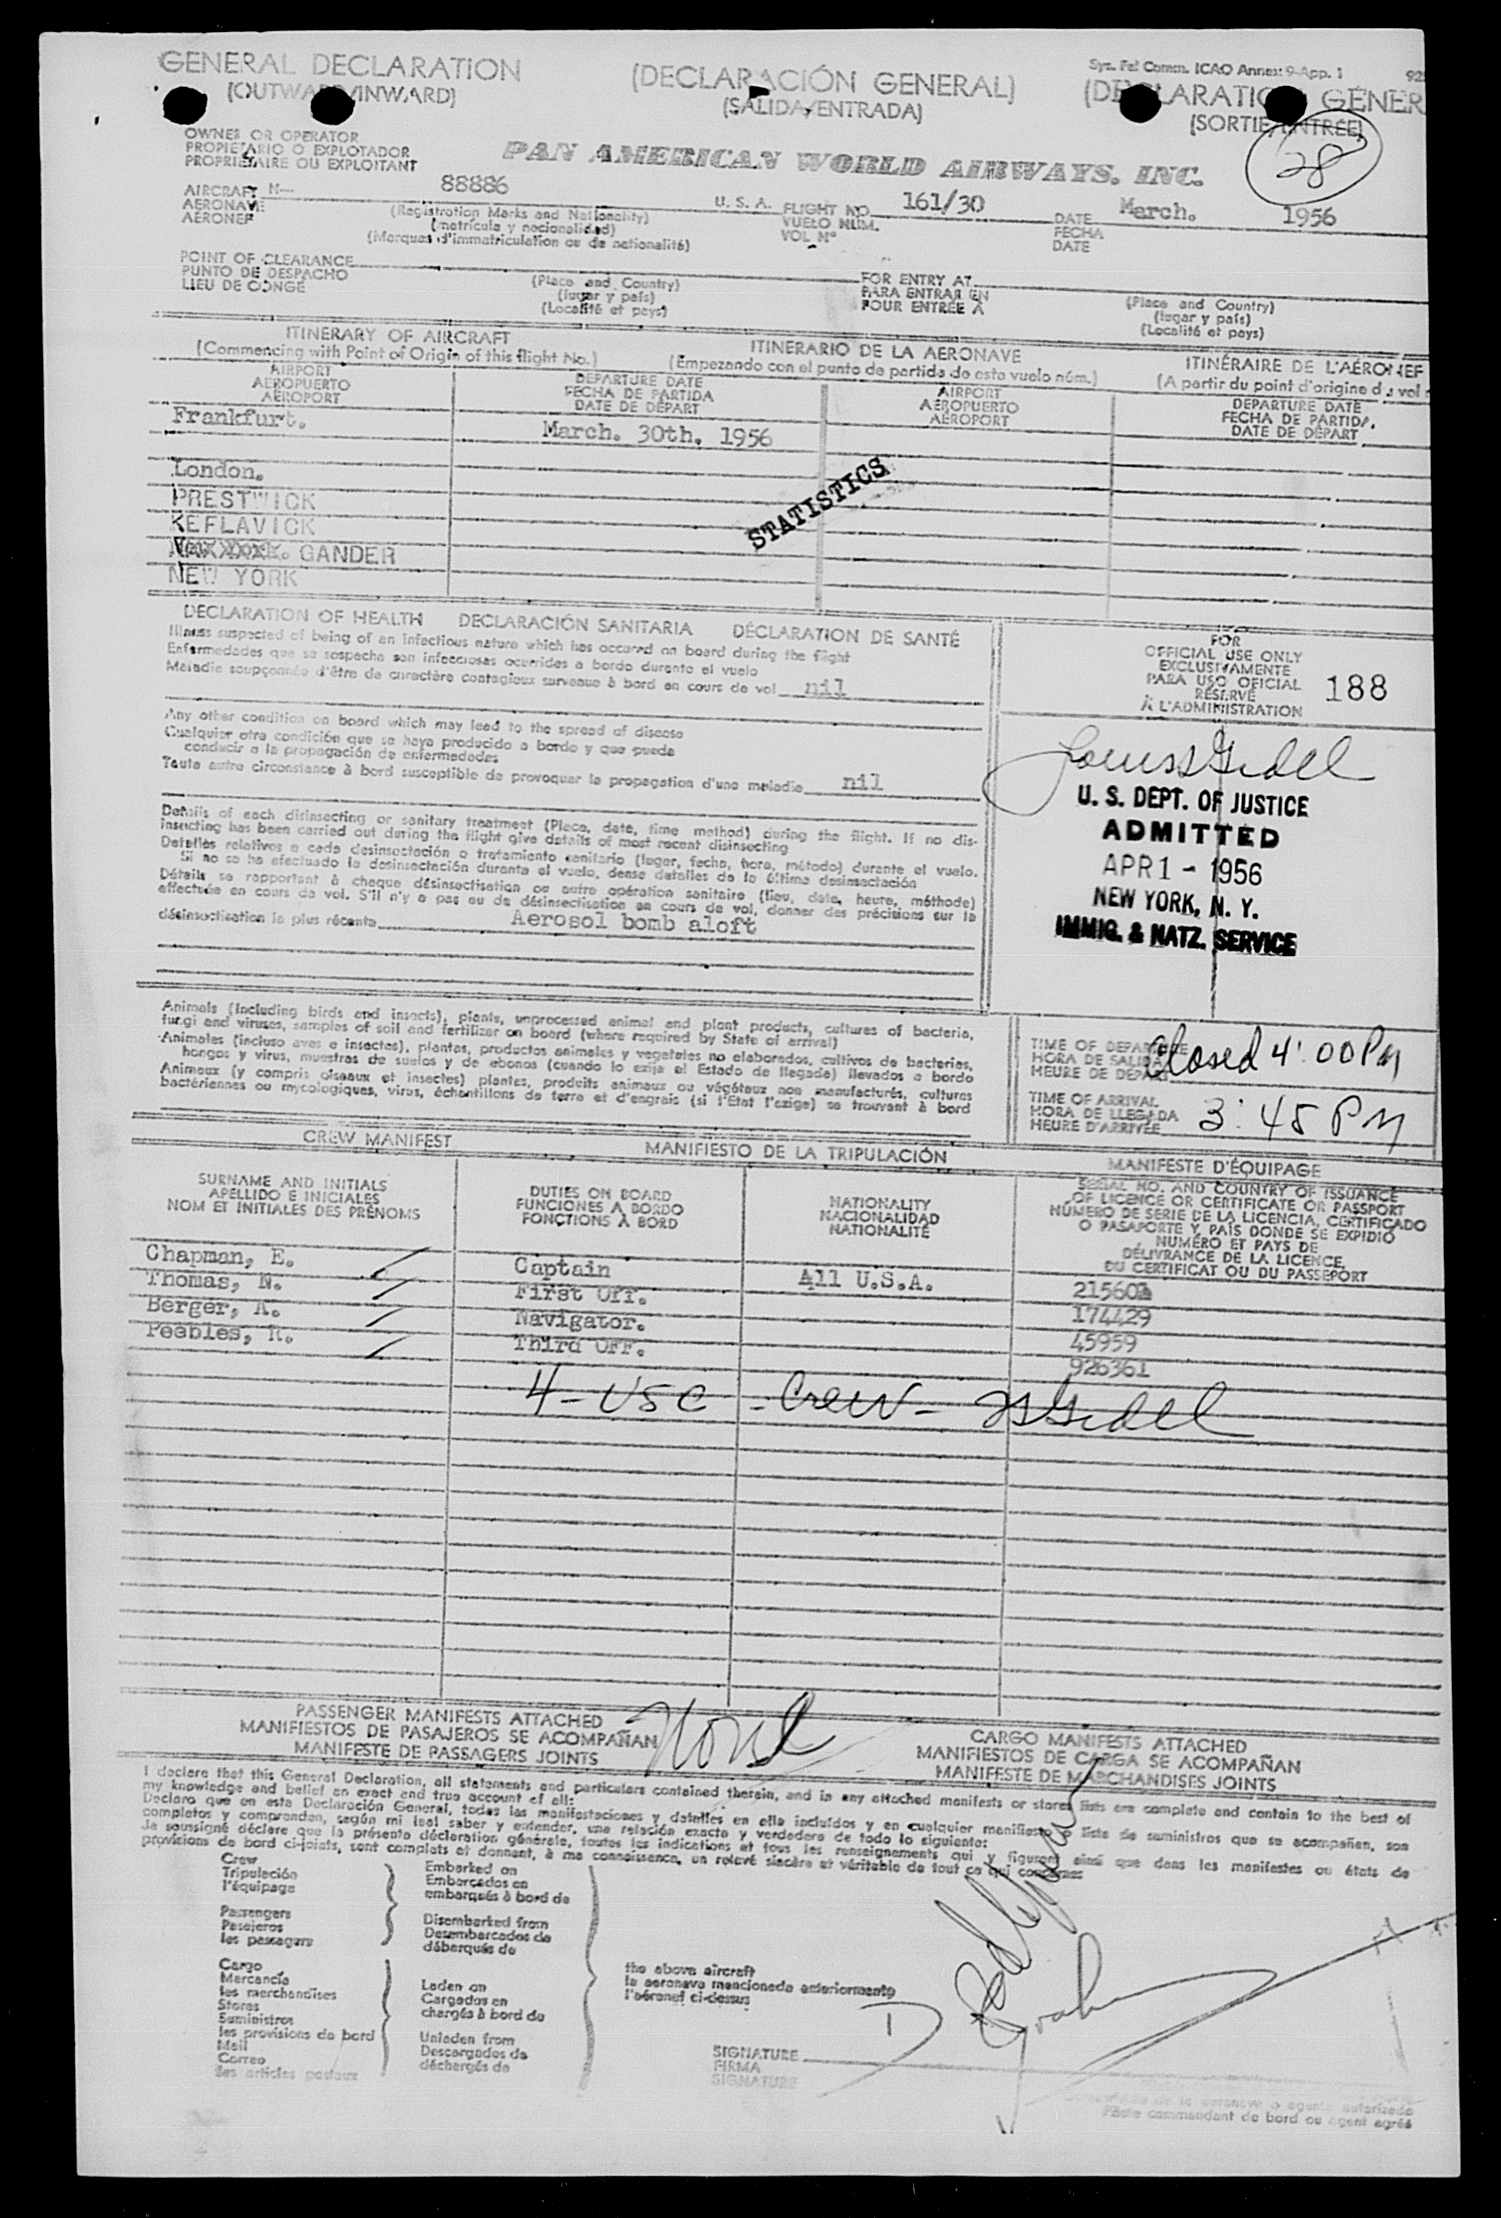 GENERAL DECLARATION
(OUTWARD/INWARD)
(DECLARACIÓN GENERAL)
(SALIDA/ENTRADA)
Sys. Fel Comm. ICAO Annex 9-App. 1
(DECLARATION GÉNER
(SORTIE/ENTRÉE)
28
OWNER OR OPERATOR
PROPIETARIO O EXPLOTADOR
PROPRIETAIRE OU EXPLOITANT
PAN AMERICAN WORLD AIRWAYS, INC.
AIRCRAFT N— 88886 U. S. A. FLIGHT NO. 161/30 DATE March. 1956
AERONAVE VUELO NUM. FECHA
AÉRONEF VOL Nº DATE
(Registration Marks and Nationality)
(matrícula y nacionalidad)
(Marques d'immatriculation ou de nationalité)
POINT OF CLEARANCE FOR ENTRY AT
PUNTO DE DESPACHO PARA ENTRAR EN
LIEU DE CONGÉ POUR ENTRÉE À
(Place and Country) (Place and Country)
(lugar y país) (lugar y país)
(Localité et pays) (Localité et pays)
ITINERARY OF AIRCRAFT ITINERARIO DE LA AERONAVE ITINÉRAIRE DE L'AÉRONEF
(Commencing with Point of Origin of this flight No.) (Empezando con el punto de partida de este vuelo núm.) (A partir du point d'origine du vol
AIRPORT DEPARTURE DATE AIRPORT DEPARTURE DATE
AEROPUERTO FECHA DE PARTIDA AEROPUERTO FECHA DE PARTIDA
AÉROPORT DATE DE DÉPART AÉROPORT DATE DE DÉPART
Frankfurt. March. 30th, 1956
London.
PRESTWICK
KEFLAVICK
New York. GANDER
NEW YORK
STATISTICS
DECLARATION OF HEALTH DECLARACIÓN SANITARIA DÉCLARATION DE SANTÉ
Illness suspected of being of an infectious nature which has occured on board during the flight
Enfermedades que se sospecha son infecciosas ocurridas a bordo durante el vuelo
Maladie soupçonnée d'être de caractère contagieux survenue à bord en cours de vol nil
Any other condition on board which may lead to the spread of disease
Cualquier otra condición que se haya producido a bordo y que puede
conducir a la propagación de enfermedades
Toute autre circonstance à bord susceptible de provoquer la propagation d'une maladie nil
Details of each disinsecting or sanitary treatment (Place, date, time method) during the flight. If no dis-
insecting has been carried out during the flight give details of most recent disinsecting
Detalles relativos a cada desinsectación o tratamiento sanitario (lugar, fecha, hora, método) durante el vuelo.
Si no se ha efectuado la desinsectación durante el vuelo, dense detalles de la última desinsectación
Détails se rapportant à chaque désinsectisation ou autre opération sanitaire (lieu, date, heure, méthode)
effectuée en cours de vol. S'il n'y a pas eu de désinsectisation en cours de vol, donner des précisions sur la
désinsectisation la plus récente Aerosol bomb aloft
FOR
OFFICIAL USE ONLY
EXCLUSIVAMENTE
PARA USO OFICIAL
RÉSERVÉ
À L'ADMINISTRATION
188
Louis S Gidel
U. S. DEPT. OF JUSTICE
ADMITTED
APR 1 - 1956
NEW YORK, N. Y.
IMMIG. & NATZ. SERVICE
Animals (including birds and insects), plants, unprocessed animal and plant products, cultures of bacteria,
fungi and viruses, samples of soil and fertilizer on board (where required by State of arrival)
Animales (incluso aves e insectos), plantas, productos animales y vegetales no elaborados, cultivos de bacterias,
hongos y virus, muestras de suelos y de abonos (cuando lo exija el Estado de llegada) llevados a bordo
Animaux (y compris oiseaux et insectes) plantes, produits animaux ou végétaux non manufacturés, cultures
bactériennes ou mycologiques, virus, échantillons de terre et d'engrais (si l'Etat l'exige) se trouvant à bord
TIME OF DEPARTURE
HORA DE SALIDA
HEURE DE DÉPART
Closed 4:00 PM
TIME OF ARRIVAL
HORA DE LLEGADA
HEURE D'ARRIVÉE
3:45 PM
CREW MANIFEST MANIFIESTO DE LA TRIPULACIÓN MANIFESTE D'ÉQUIPAGE
SURNAME AND INITIALS
APELLIDO E INICIALES
NOM ET INITIALES DES PRÉNOMS
DUTIES ON BOARD
FUNCIONES A BORDO
FONCTIONS À BORD
NATIONALITY
NACIONALIDAD
NATIONALITÉ
SERIAL NO. AND COUNTRY OF ISSUANCE
OF LICENCE OR CERTIFICATE OR PASSPORT
NÚMERO DE SERIE DE LA LICENCIA, CERTIFICADO
O PASAPORTE Y PAIS DONDE SE EXPIDIÓ
NUMÉRO ET PAYS DE
DÉLIVRANCE DE LA LICENCE,
DU CERTIFICAT OU DU PASSEPORT
Chapman, E. Captain All U.S.A. 215602
Thomas, N. First Off. 174429
Berger, A. Navigator. 45959
Peebles, R. Third Off. 926361
4 - USC - Crew - LS Gidel
PASSENGER MANIFESTS ATTACHED
MANIFIESTOS DE PASAJEROS SE ACOMPAÑAN
MANIFESTE DE PASSAGERS JOINTS
None
CARGO MANIFESTS ATTACHED
MANIFIESTOS DE CARGA SE ACOMPAÑAN
MANIFESTE DE MARCHANDISES JOINTS
I declare that this General Declaration, all statements and particulars contained therein, and in any attached manifests or stores lists are complete and contain to the best of
my knowledge and belief an exact and true account of all:
Declaro que en esta Declaración General, todas las manifestaciones y detalles en ella incluídos y en cualquier manifiesto o lista de suministros que se acompañan, son
completos y comprenden, según mi leal saber y entender, una relación exacta y verdadera de todo lo siguiente:
Je soussigné déclare que la présente déclaration générale, toutes les indications et tous les renseignements qui y figurent ainsi que dans les manifestes ou états de
provisions de bord ci-joints, sont complets et donnent, à ma connaissance, un relevé sincère et véritable de tout ce qui concerne
Crew
Tripulación
l'équipage
Passengers
Pasajeros
les passagers
Cargo
Mercancía
les marchandises
Stores
Suministros
les provisions de bord
Mail
Correo
les articles postaux
Embarked on
Embarcados en
embarqués à bord de
Disembarked from
Desembarcados de
débarqués de
Laden on
Cargados en
chargés à bord de
Unladen from
Descargados de
déchargés de
the above aircraft
la aeronave mencionada anteriormente
l'aéronef ci-dessus
SIGNATURE
FIRMA
SIGNATURE
de la aeronave o agente autorizado
Pilote commandant de bord ou agent agréé